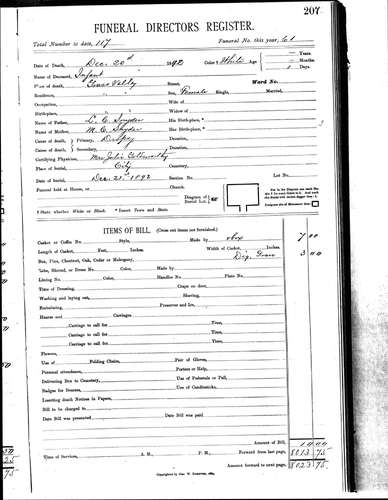 207
FUNERAL DIRECTORS REGISTER.
Total Number to date, 117 Funeral No. this year, 61
Date of Death, Dec. 20th 1892 Color † White Age — Years.
— Months
1 Days.
Name of Deceased, Infant
Place of death, Valley Street, Ward No.
Residence, " " Sex, Female Single, Married,
Occupation, Wife of
Birth-place, " " Widow of
Name of Father, L. C. Snyder His Birth-place, *
Name of Mother, M. E. Snyder Her Birth-place, *
Cause of death, Primary, Duration,
Cause of death, Secondary, Duration,
Certifying Physician, Mrs Julia
Place of burial, City Cemetery,
Date of burial, Dec. 21st 1892 Section No. Lot No.
Funeral held at House, or Church.
Diagram of Burial Lot.
Put in the Diagram one mark thus
† State whether White or Black * Insert Town and State.
ITEMS OF BILL. (Cross out items not furnished.)
Casket or Coffin No. Style, Made by box 7 00
Length of Casket, Feet, Inches. Width of Casket, Inches.
Box, Pine, Chestnut, Oak, Cedar or Mahogany, Dig. Grave 3 00
Made by
Lining No. Color, Handles No. Plate No.
Time of Dressing, Crape on door,
Washing and laying out, Shaving,
Embalming, Preserver and Ice,
Hearse and Carriages.
Carriage to call for Time,
Carriage to call for Time,
Carriage to call for Time,
Carriage to call for Time,
Flowers,
Use of Folding Chairs, Pair of Gloves,
Personal attendance, Porters or Help,
Delivering Box to Cemetery, Use of Pedestals or Pall,
Badges for Bearers, Use of Candlesticks,
Inserting death Notices in Papers,
Bill to be charged to
Date Bill was presented Date Bill was paid
Amount of Bill, 10 00
Time of Services, A. M., P. M., Forward from last page, 8013 75
Amount forward to next page, 8023 75